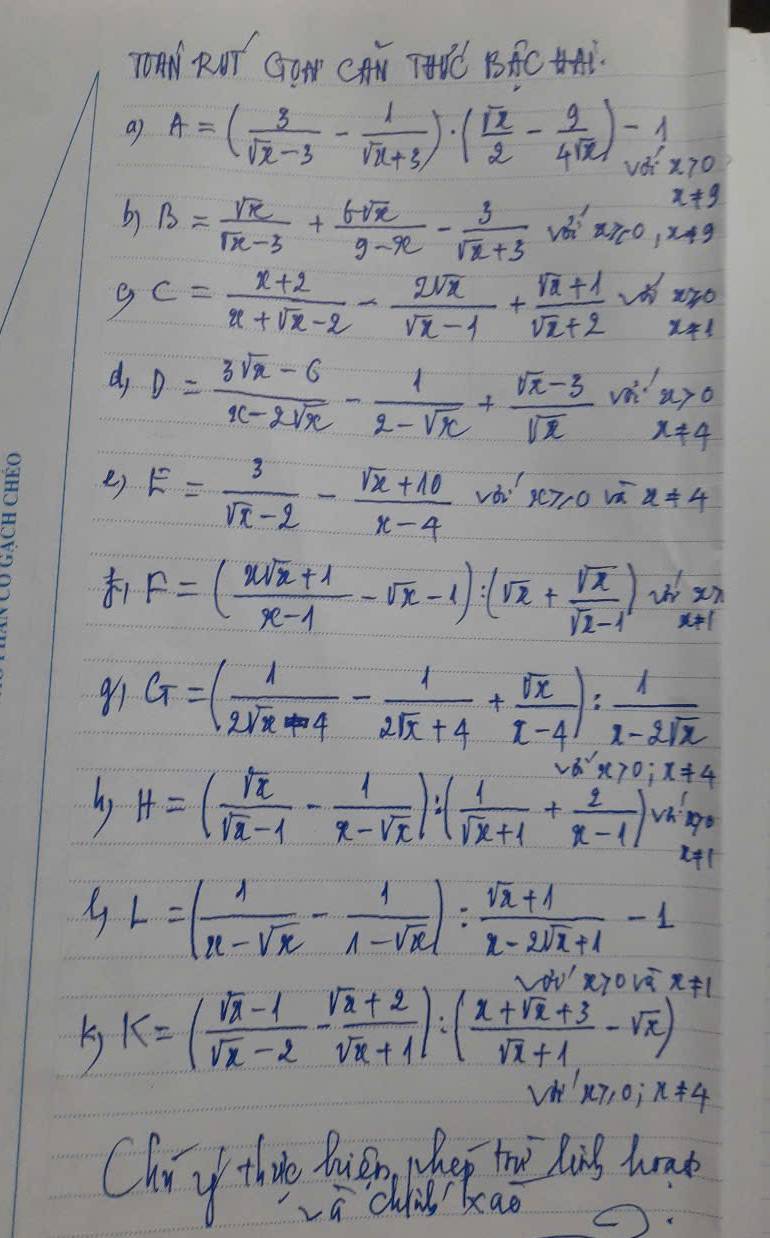 TOÁN RÚT GỌN CĂN THỨC BẬC HAI.
a) A = (3/(√x-3) - 1/(√x+3)) . (√x/2 - 9/(4√x)) - 1 với x>0 x≠9
b) B = √x/(√x-3) + 6√x/(9-x) - 3/(√x+3) với x≥0, x≠9
c) C = (x+2)/(x+√x-2) - 2√x/(√x-1) + (√x+1)/(√x+2) với x≥0 x≠1
d) D = (3√x-6)/(x-2√x) - 1/(2-√x) + (√x-3)/√x với x>0 x≠4
e) E = 3/(√x-2) - (√x+10)/(x-4) với x≥0 và x≠4
f) F = ((x√x+1)/(x-1) - √x - 1) : (√x + √x/(√x-1)) với x> x≠1
g) G = (1/(2√x-4) - 1/(2√x+4) + √x/(x-4)) : 1/(x-2√x)
với x>0; x≠4
h) H = (√x/(√x-1) - 1/(x-√x)) : (1/(√x+1) + 2/(x-1)) với x>0 x≠1
l) L = (1/(x-√x) - 1/(1-√x)) : (√x+1)/(x-2√x+1) - 1
với x>0 và x≠1
k) K = ((√x-1)/(√x-2) - (√x+2)/(√x+1)) : ((x+√x+3)/(√x+1) - √x)
với x≥0; x≠4
Chú ý thực hiện phép trừ linh hoạt
và chính xác
CÓ GẠCH CHÉO